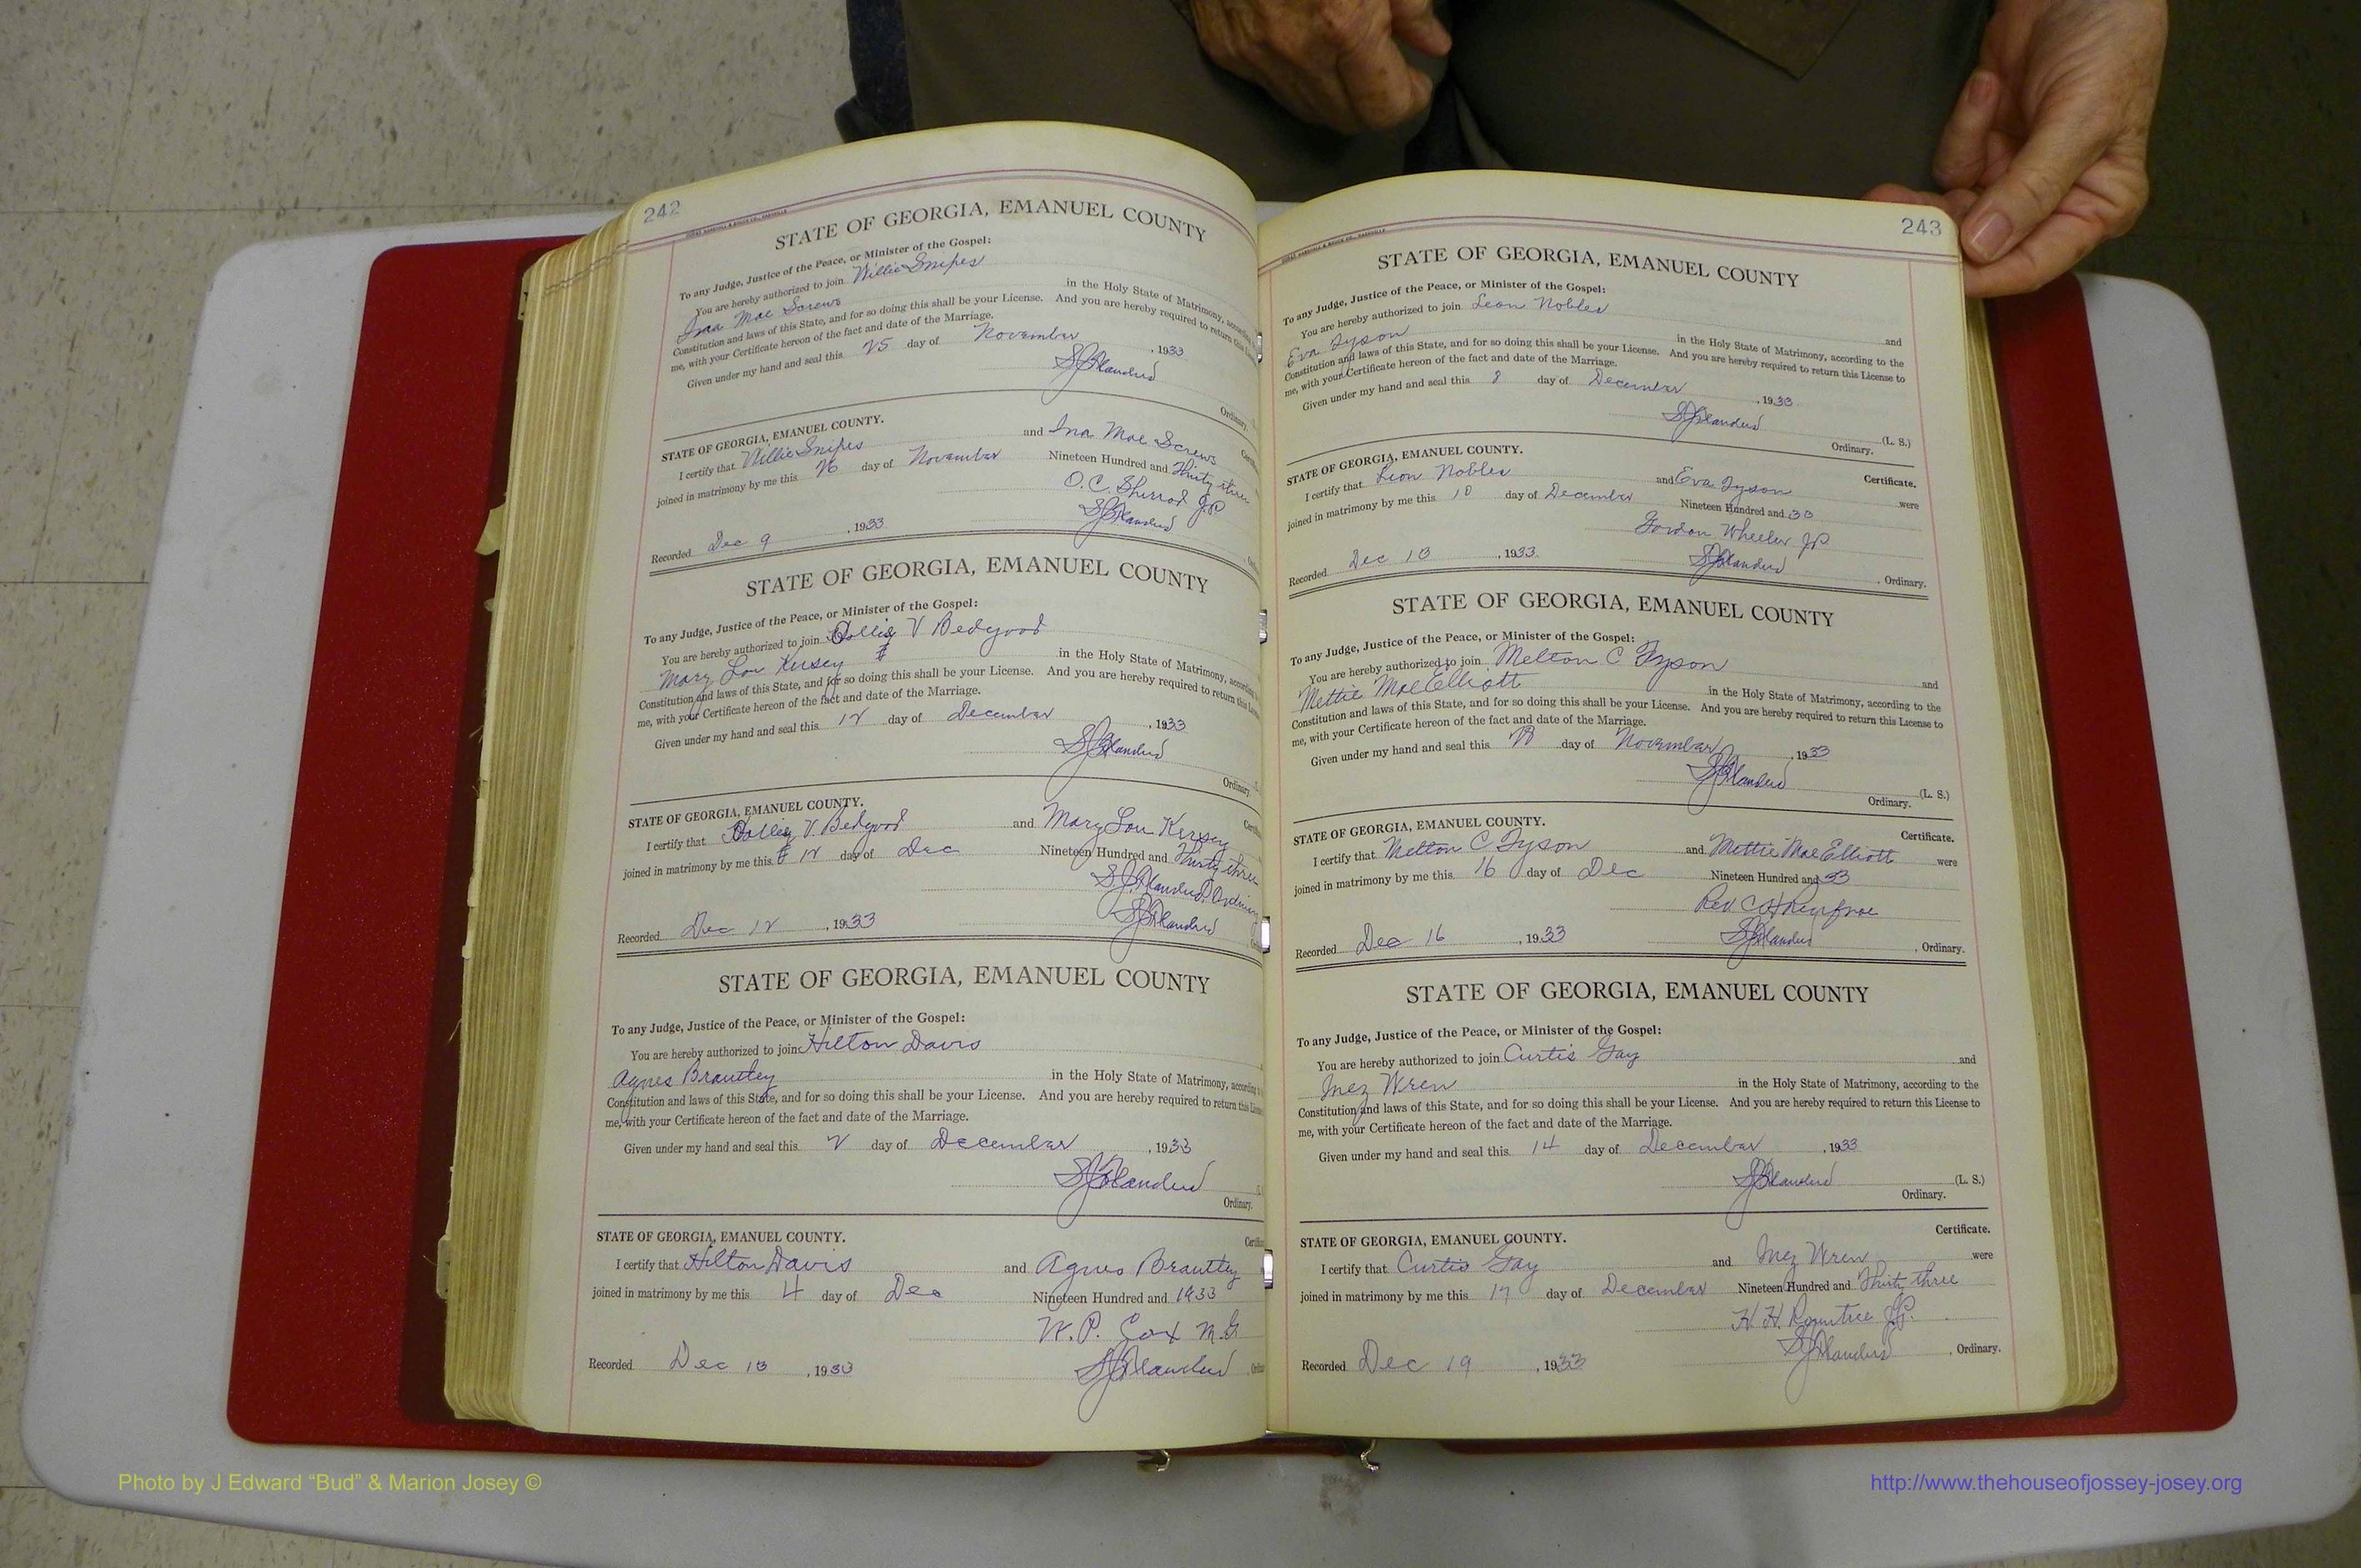 242
STATE OF GEORGIA, EMANUEL COUNTY
To any Judge, Justice of the Peace, or Minister of the Gospel:
You are hereby authorized to join Willie Snipes
Ina Mae Screws in the Holy State of Matrimony,
Constitution and laws of this State, and for so doing this shall be your License. And you are hereby required to return this
me, with your Certificate hereon of the fact and date of the Marriage.
Given under my hand and seal this 25 day of November, 1933
Ordinary.
STATE OF GEORGIA, EMANUEL COUNTY.
I certify that Willie Snipes and Ina Mae Screws
joined in matrimony by me this 26 day of November Nineteen Hundred and Thirty three
O.C. Sherrod J.P
Recorded Dec 9, 1933
STATE OF GEORGIA, EMANUEL COUNTY
To any Judge, Justice of the Peace, or Minister of the Gospel:
You are hereby authorized to join V Bedgood
Mary Lou Kersey in the Holy State of Matrimony,
Constitution and laws of this State, and for so doing this shall be your License. And you are hereby required to return this
me, with your Certificate hereon of the fact and date of the Marriage.
Given under my hand and seal this 12 day of December, 1933
Ordinary.
STATE OF GEORGIA, EMANUEL COUNTY.
I certify that V. Bedgood and Mary Lou Kersey
joined in matrimony by me this 12 day of Dec Nineteen Hundred and Thirty three
Recorded Dec 12, 1933
STATE OF GEORGIA, EMANUEL COUNTY
To any Judge, Justice of the Peace, or Minister of the Gospel:
You are hereby authorized to join Hilton Davis
Agnes Brantley in the Holy State of Matrimony,
Constitution and laws of this State, and for so doing this shall be your License. And you are hereby required to return this
me, with your Certificate hereon of the fact and date of the Marriage.
Given under my hand and seal this 2 day of December, 1933
Ordinary.
STATE OF GEORGIA, EMANUEL COUNTY.
I certify that Hilton Davis and Agnes Brantley
joined in matrimony by me this 4 day of Dec Nineteen Hundred and 1933
W. P. Cox M.G
Recorded Dec 13, 1933
243
STATE OF GEORGIA, EMANUEL COUNTY
To any Judge, Justice of the Peace, or Minister of the Gospel:
You are hereby authorized to join Leon Nobles and
Eva Tyson in the Holy State of Matrimony, according to the
Constitution and laws of this State, and for so doing this shall be your License. And you are hereby required to return this License to
me, with your Certificate hereon of the fact and date of the Marriage.
Given under my hand and seal this 8 day of December, 1933
(L. S.)
Ordinary.
STATE OF GEORGIA, EMANUEL COUNTY. Certificate.
I certify that Leon Nobles and Eva Tyson were
joined in matrimony by me this 10 day of December Nineteen Hundred and 33
Gordon Wheeler JP
Recorded Dec 13, 1933. , Ordinary.
STATE OF GEORGIA, EMANUEL COUNTY
To any Judge, Justice of the Peace, or Minister of the Gospel:
You are hereby authorized to join Melton C Tyson and
Mettie Mae Elliott in the Holy State of Matrimony, according to the
Constitution and laws of this State, and for so doing this shall be your License. And you are hereby required to return this License to
me, with your Certificate hereon of the fact and date of the Marriage.
Given under my hand and seal this day of November, 1933
(L. S.)
Ordinary.
STATE OF GEORGIA, EMANUEL COUNTY. Certificate.
I certify that Melton C Tyson and Mettie Mae Elliott were
joined in matrimony by me this 16 day of Dec Nineteen Hundred and 33
Rev C H Renfroe
Recorded Dec 16, 1933 , Ordinary.
STATE OF GEORGIA, EMANUEL COUNTY
To any Judge, Justice of the Peace, or Minister of the Gospel:
You are hereby authorized to join Curtis Gay and
Inez Wren in the Holy State of Matrimony, according to the
Constitution and laws of this State, and for so doing this shall be your License. And you are hereby required to return this License to
me, with your Certificate hereon of the fact and date of the Marriage.
Given under my hand and seal this 14 day of December, 1933
(L. S.)
Ordinary.
Certificate.
STATE OF GEORGIA, EMANUEL COUNTY.
I certify that Curtis Gay and Inez Wren were
joined in matrimony by me this 17 day of December Nineteen Hundred and Thirty three
H. H. Rountree J.P.
Recorded Dec 19, 1933 , Ordinary.
Photo by J Edward “Bud” & Marion Josey ©
http://www.thehouseofjossey-josey.org